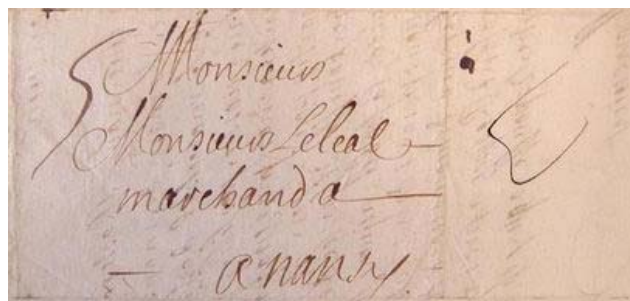 Monsieur
Monsieur Leleal
marchand a
a nans